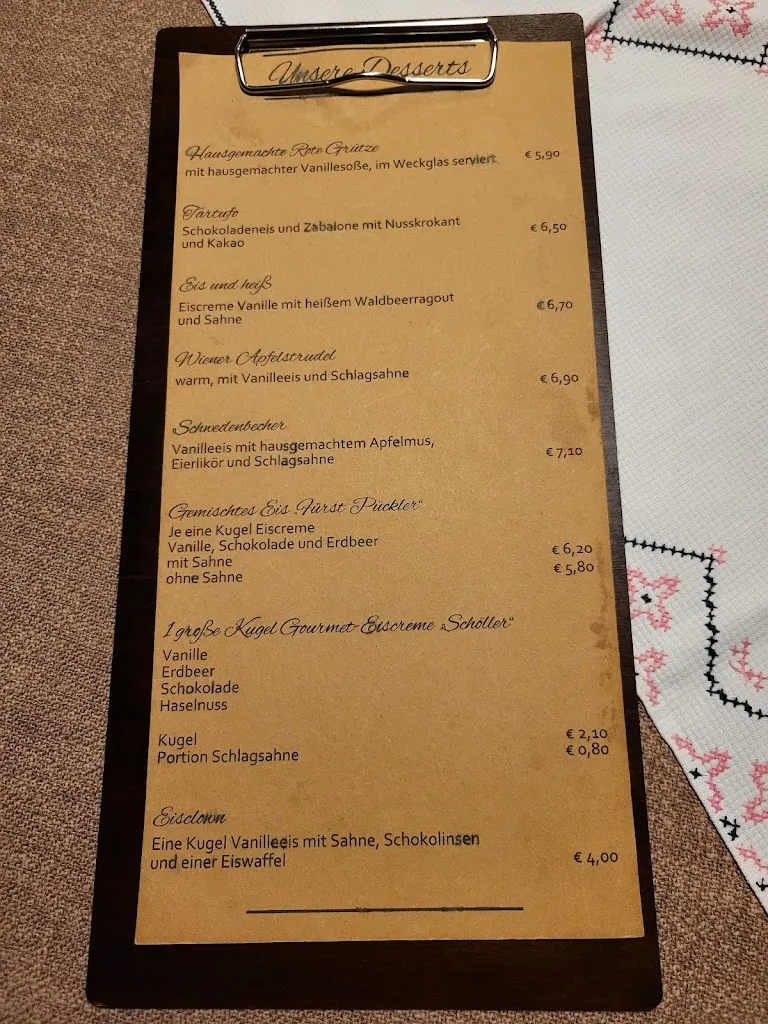 Unsere Desserts
Hausgemachte Rote Grütze
mit hausgemachter Vanillesoße, im Weckglas serviert € 5,90
Tartufo
Schokoladeneis und Zabaione mit Nusskrokant € 6,50
und Kakao
Eis und heiß
Eiscreme Vanille mit heißem Waldbeerragout € 6,70
und Sahne
Wiener Apfelstrudel
warm, mit Vanilleeis und Schlagsahne € 6,90
Schwedenbecher
Vanilleeis mit hausgemachtem Apfelmus, € 7,10
Eierlikör und Schlagsahne
Gemischtes Eis „Fürst Pückler“
Je eine Kugel Eiscreme
Vanille, Schokolade und Erdbeer
mit Sahne € 6,20
ohne Sahne € 5,80
1 große Kugel Gourmet-Eiscreme „Schöller“
Vanille
Erdbeer
Schokolade
Haselnuss
Kugel € 2,10
Portion Schlagsahne € 0,80
Eisclown
Eine Kugel Vanilleeis mit Sahne, Schokolinsen
und einer Eiswaffel € 4,00